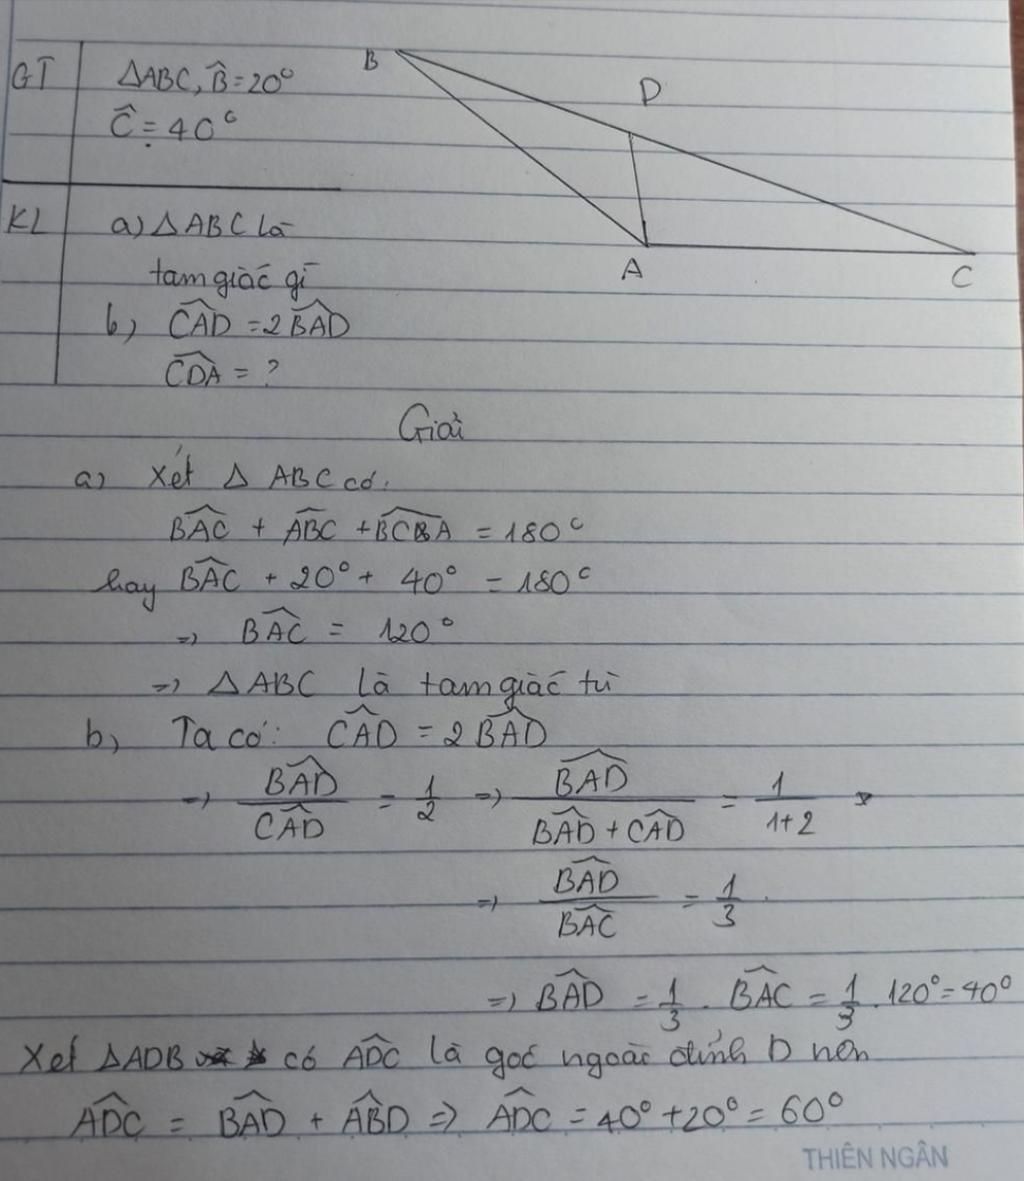 GT ΔABC, B̂ = 20°
Ĉ = 40°
KL a) ΔABC là
tam giác gì
b) CAD̂ = 2BAD̂
CDÂ = ?
B
D
A
C
Giải
a) Xét Δ ABC có:
BAĈ + ABĈ + BCÂ = 180°
hay BAĈ + 20° + 40° = 180°
=> BAĈ = 120°
=> ΔABC là tam giác tù
b) Ta có: CAD̂ = 2BAD̂
=> BAD̂ / CAD̂ = 1/2 => BAD̂ / (BAD̂ + CAD̂) = 1/(1+2)
=> BAD̂ / BAĈ = 1/3
=> BAD̂ = 1/3 . BAĈ = 1/3 . 120° = 40°
Xét ΔADB có ADĈ là góc ngoài đỉnh D nên
ADĈ = BAD̂ + ABD̂ => ADĈ = 40° + 20° = 60°
THIÊN NGÂN